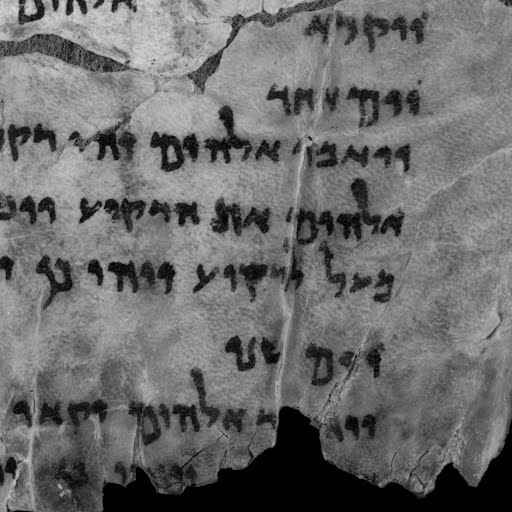 אלהים
ויקרא
יום אחד
ויאמר אלהים יהי רקי
אלהים את הרקיע ויב
מעל לרקיע ויהי כן
יום שני
וי ר אלהים יקוו